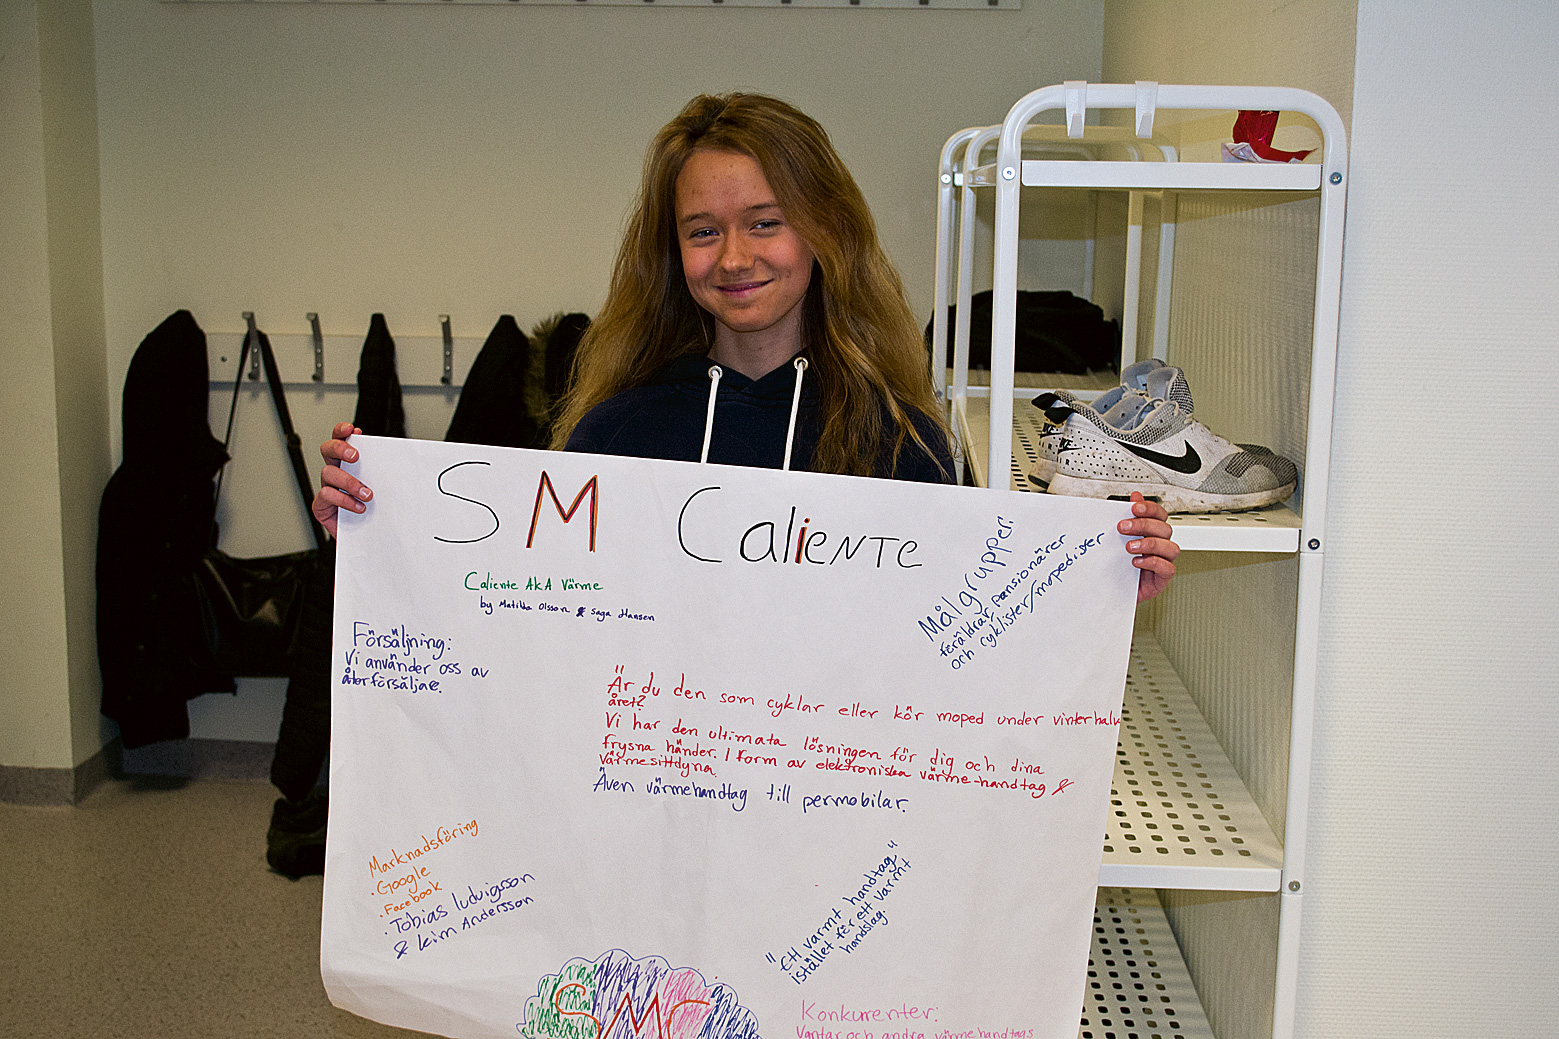 SM Caliente
Caliente AKA Värme
by Matilda Olsson & Saga Hansen
Målgrupper:
föräldrar, pansionärer
och cyklister/mopedister
Försäljning:
Vi använder oss av
återförsäljare.
"Är du den som cyklar eller kör moped under vinterhalv
året?
Vi har den ultimata lösningen för dig och dina
frysna händer. I form av elektroniska värme-handtag &
värmesittdyna.
Även värmehandtag till permobilar.
Marknadsföring
.Google
.Facebook
.Tobias ludvigsson
& kim Andersson
"Ett varmt handtag"
istället för ett varmt
handslag.
SMC
Konkurenter:
Vantar och andra värmehandtags